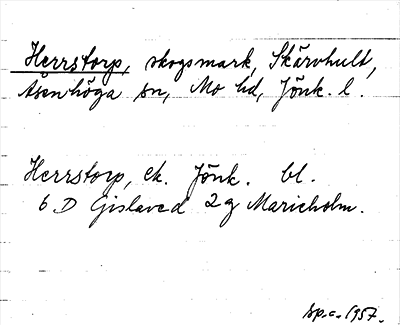 Herrstorp, skogsmark, Skärvhult,
Åsenhöga sn, Mo hd, Jönk. l.
Herrstorp, ek. Jönk. bl.
6 D Gislaved 2 g Marieholm.
sp.c. 1957.